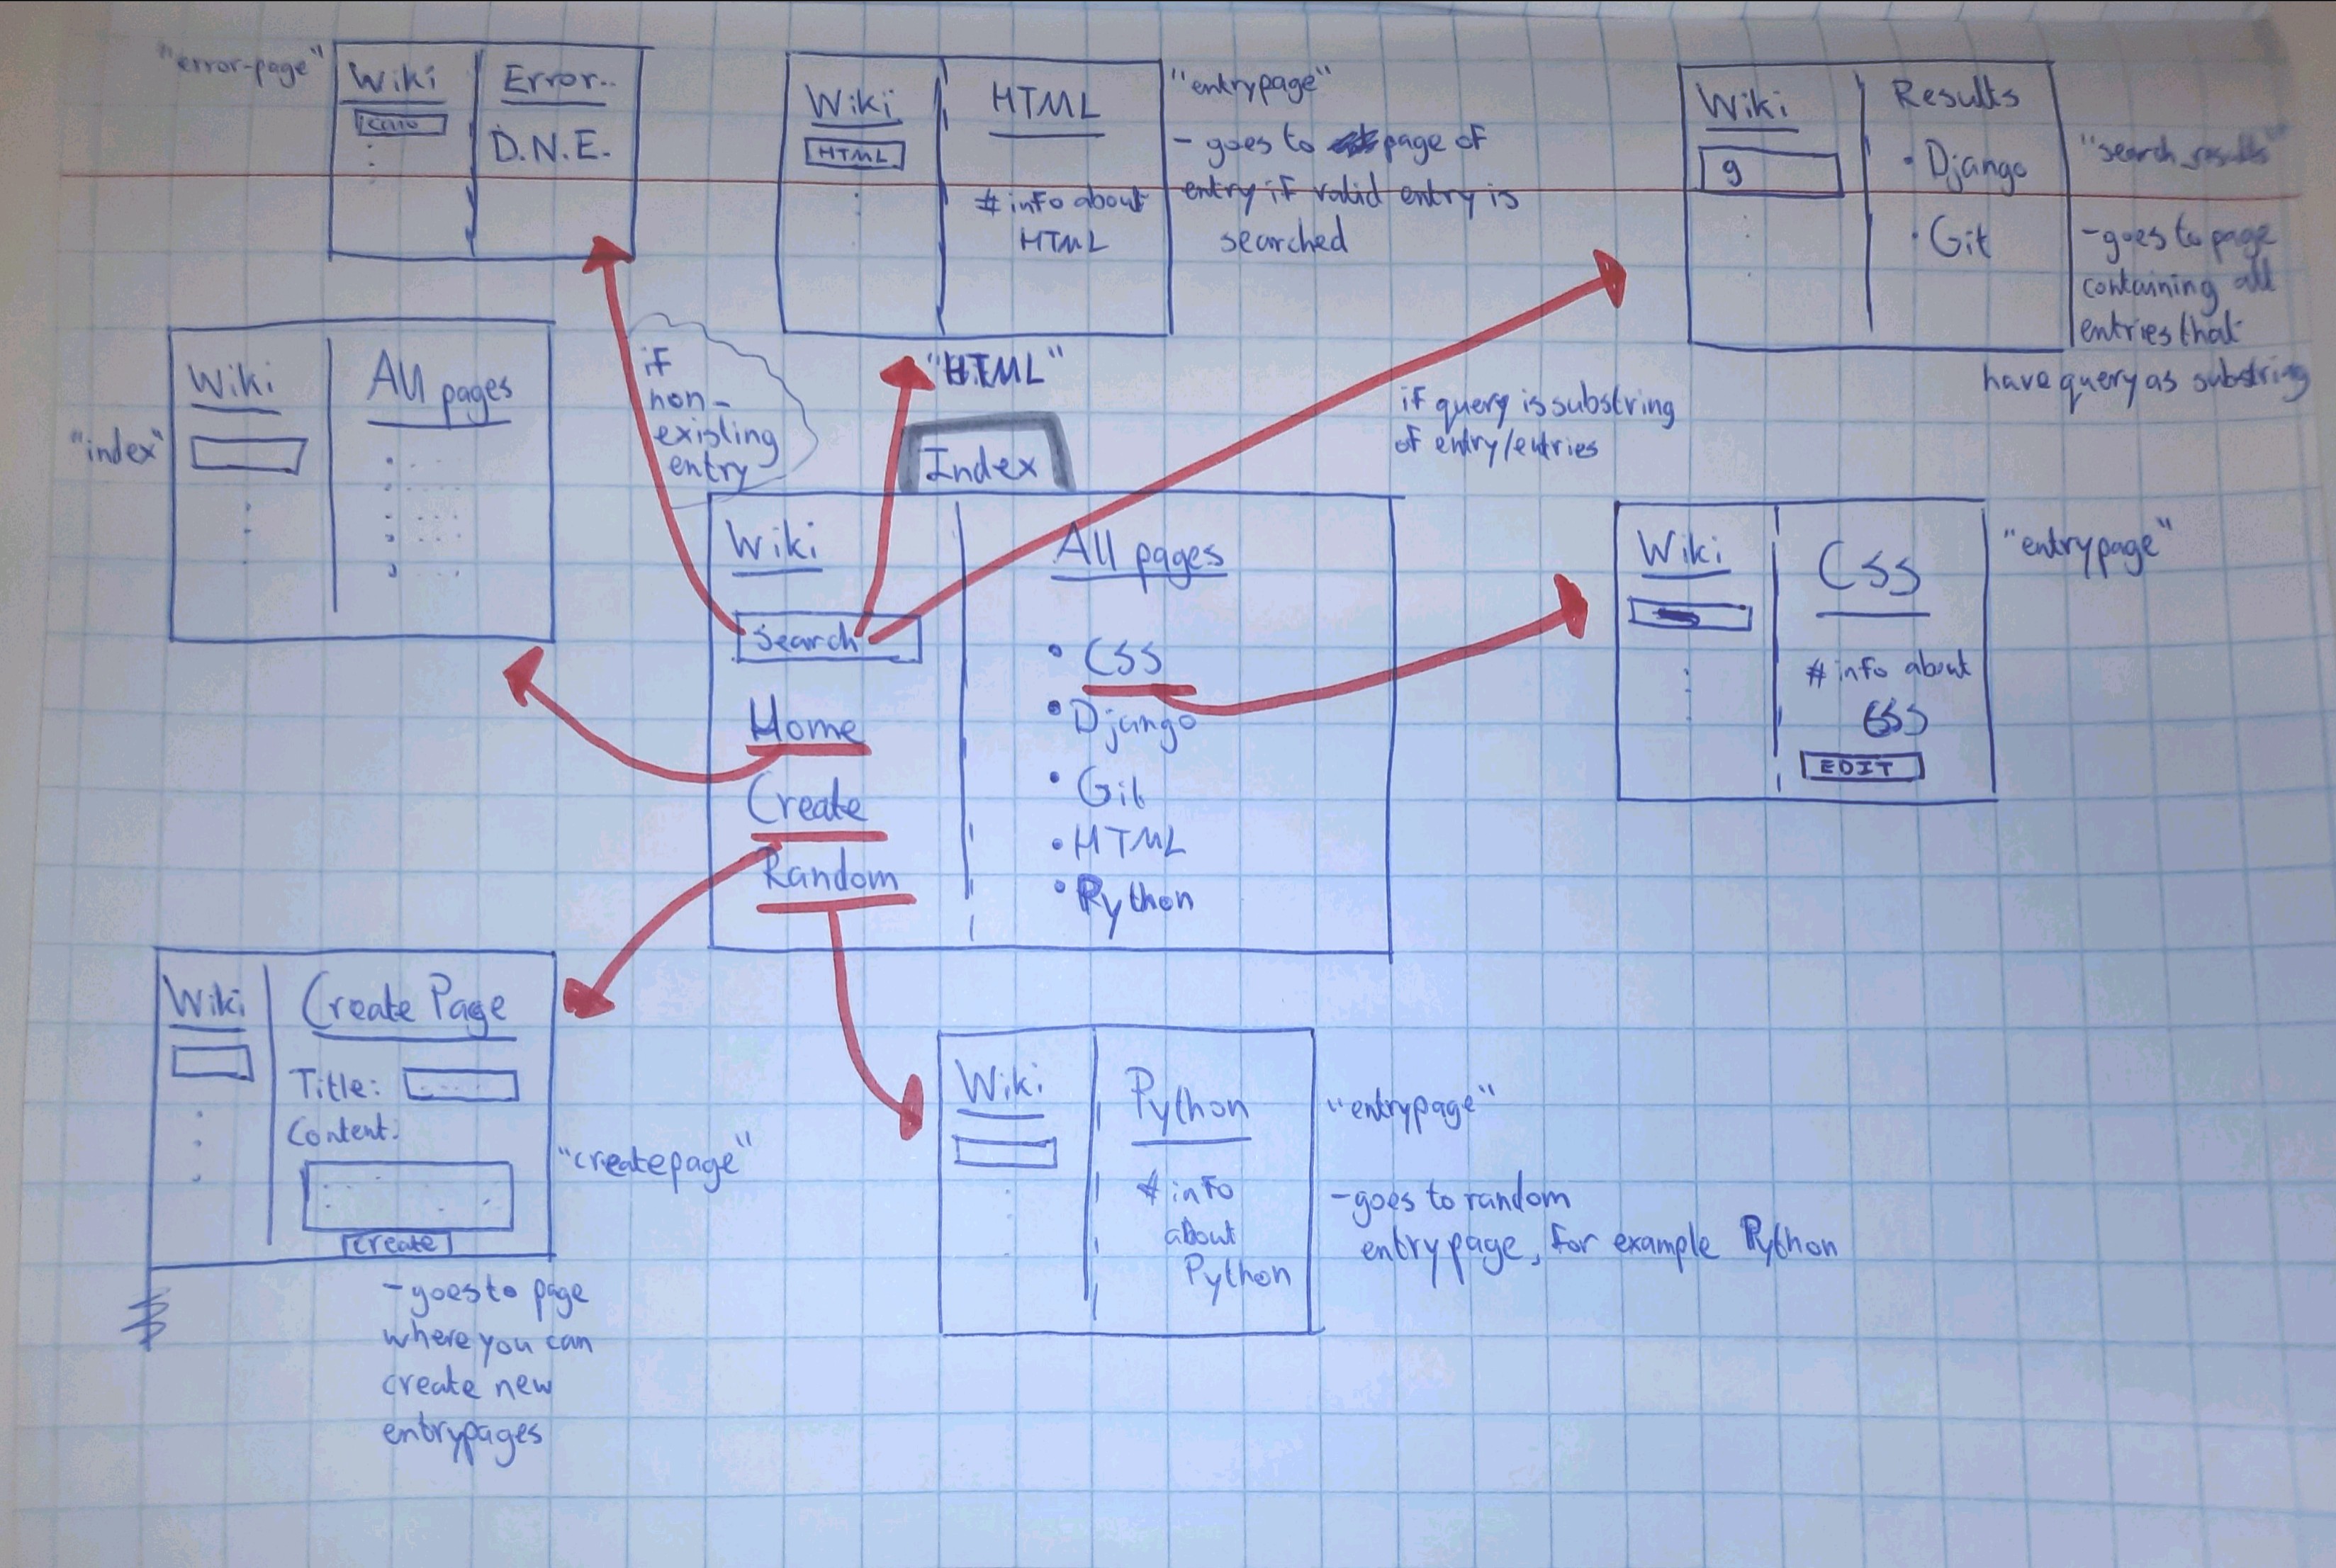 "error-page"
Wiki
Error..
D.N.E.
Wiki
HTML
HTML
# info about
HTML
"entrypage"
- goes to page of
entry if valid entry is
searched
Wiki
g
Results
• Django
• Git
"search_results"
- goes to page
containing all
entries that
have query as substring
"index"
Wiki
All pages
if
non-
existing
entry
"HTML"
if query is substring
of entry/entries
Index
Wiki
Search
Home
Create
Random
All pages
• CSS
• Django
• Git
• HTML
• Python
Wiki
CSS
# info about
CSS
EDIT
"entrypage"
Wiki
Create Page
Title:
Content:
Create
"createpage"
- goes to page
where you can
create new
entrypages
Wiki
Python
# info
about
Python
"entrypage"
- goes to random
entrypage, for example Python